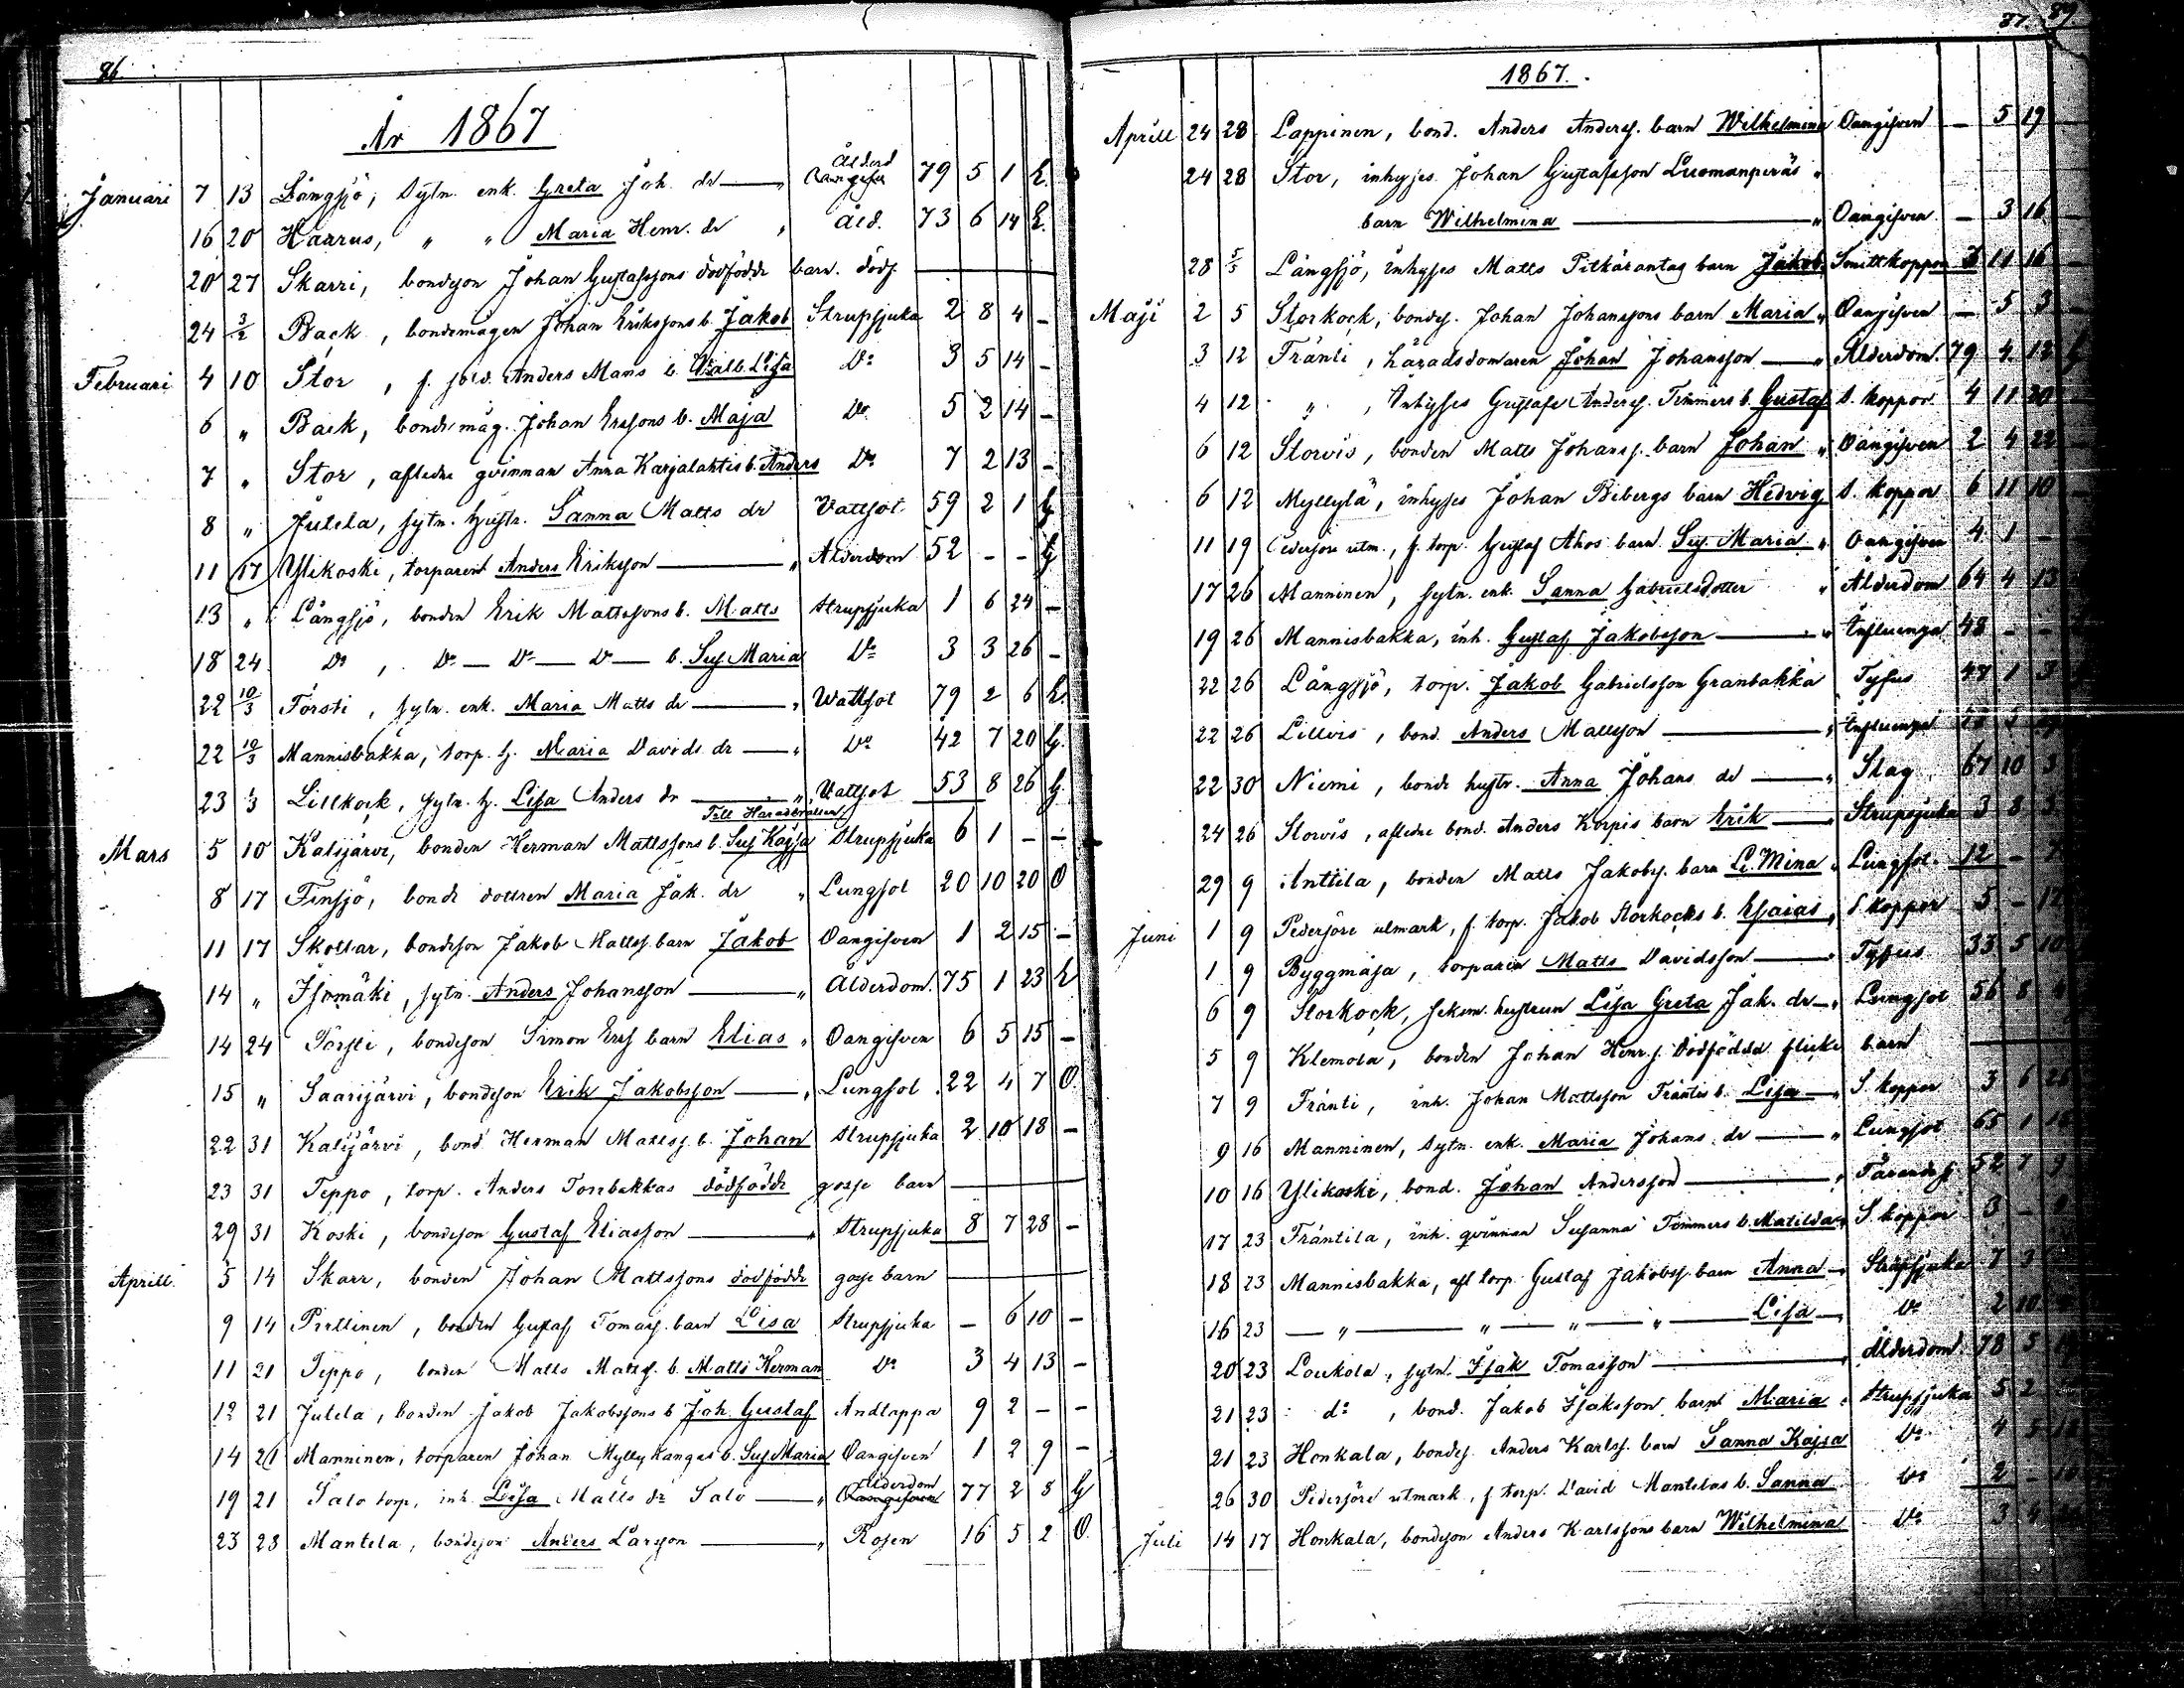 86
År 1867
Januari 7 13 Långsjö, Sytn. enk. Greta Joh. dr — " Ålderd Oangifven 79 5 1 E.
16 20 Harrus, " " Maria Henr. dr " Åld. 73 6 14 E.
20 27 Skarri, bondeson Johan Gustafssons dödfödde barn. dödf. —
24 3/2 Back, bondemågen Johan Erikssons b. Jakob Strupsjuka 2 8 4 –
Februari 4 10 Stor, f. sold. Anders Mans b. Walb. Lisa Do 3 5 14 –
6 " Back, bondemåg. Johan Erssons b. Maja Do 5 2 14 –
7 " Stor, aflidne qvinnan Anna Karjalahtis b. Anders Do 7 2 13 –
8 " Julela, sytn. hustr. Sanna Matts dr Vattsot 59 2 1 G
11 17 Ylikoski, torparen Anders Eriksson — " Ålderdom 52 – – G
13 " Långsjö, bonden Erik Mattssons b. Matts Strupsjuka 1 6 24 –
18 24 Do, Do — Do — Do — b. Sus. Maria Do 3 3 26 –
22 10/3 Försti, sytn. enk. Maria Matts dr — " Wattsot 79 2 6 E.
22 10/3 Mannisbakka, torp. h. Maria Davids dr — " Do 42 7 20 G.
23 1/3 Lillkock, sytn. h. Lisa Anders dr — " Vattsot 53 8 26 G.
Till Häradsrätten
Mars 5 10 Katsjärvi, bonden Herman Mattssons b. Sus Kajsa Strupsjuka 6 1 – –
8 17 Finsjö, bonde dottren Maria Jak. dr " Lungsot 20 10 20 O
11 17 Skollar, bondeson Jakob Matts. barn Jakob Oangifven 1 2 15 –
14 " Isomäki, sytn. Anders Johansson — " Ålderdom. 75 1 23 E
14 24 Försti, bondeson Simon Ers. barn Elias " Oangifven 6 5 15 –
15 " Saarijärvi, bondeson Erik Jakobsson — " Lungsot 22 4 7 O.
22 31 Katsjärvi, bond Herman Matts. b. Johan Strupsjuka 2 10 18 –
23 31 Teppo, torp. Anders Torrbakkas dödfödde gosse barn —
29 31 Koski, bondeson Gustaf Eliasson — " Strupsjuka 8 7 28 –
Aprill. 5 14 Skarr, bonden Johan Mattssons dödfödde gosse barn —
9 14 Pirttinen, bonden Gustaf Tomas. barn Lisa Strupsjuka – 6 10 –
11 21 Teppo, bonden Matts Matts. b. Matts Herman Do 3 4 13 –
12 21 Julela, bonden Jakob Jakobssons b. Joh. Gustaf Andtäppa 9 2 – –
14 21 Manninen, torparen Johan Myllykangas b. Sus. Maria Oangifven 1 2 9 –
19 21 Salo torp, inh. Lisa Matts dr Salo — " Ålderdom Oangifven 77 2 8 G
23 28 Mantela, bondeson Anders Larsson — " Rosen 16 5 2 O.
87. 89.
1867.
Aprill 24 28 Lappinen, bond. Anders Anders. barn Wilhelmina Oangifven – 5 19
24 28 Stor, inhyses Johan Gustafsson Luomanperäs "
barn Wilhelmina — " Oangifven. – 3 16
28 5/5 Långsjö, inhyses Matts Pitkärantas barn Jakob Smittkoppor 3 11 16
Maji 2 5 Storkock, bondes. Johan Johanssons barn Maria " Oangifven – 5 3
3 12 Fränti, häradsdomaren Johan Johansson — " Ålderdom. 79 4 12 G
4 12 ", Inhyses Gustafs Anders. Timmers b. Gustaf S. koppor. 4 11 20
6 12 Storvis, bonden Matts Johans. barn Johan " Oangifven 2 4 22
6 12 Myllylä, inhyses Johan Bibergs barn Hedvig S. koppor 6 11 10
11 19 Pedersöre utm., f. torp. Gustaf Ahos barn Sus. Maria " Oangifven 4 1 –
17 26 Manninen, sytn. enk. Sanna Gabrielsdotter " Ålderdom 64 4 13
19 26 Mannisbakka, inh. Gustaf Jakobsson — " Influenza 48 – –
22 26 Långsjö, torp. Jakob Gabrielsson Granbakka Tyfus 47 1 3
22 26 Lillvis, bond. Anders Mattsson — " Influenza
22 30 Niemi, bonde hustr. Anna Johans dr — " Slag 67 10 3
24 26 Storvis, aflidne bond. Anders Korpis barn Erik — " Strupsjuka 3 8
29 9 Anttila, bonden Matts Jakobs. barn L. Mina " Lungsot. 12 –
Juni 1 9 Pedersöre utmark, f. torp. Jakob Storkocks b. Esaias " S. koppor 5 – 12
1 9 Byggmäja, torparen Matts Davidsson — " Tyfus 33 5 10
6 9 Storkock, sexm. hustrun Lisa Greta Jak. dr — " Lungsot 56 8
5 9 Klemola, bonden Johan Henr. s. dödfödda flicke barn —
7 9 Fränti, inh. Johan Mattsson Fräntis b. Lisa — " S. koppor 3 6 25
9 16 Manninen, Sytn. enk. Maria Johans dr — " Lungsot 65 1 18
10 16 Ylikoski, bond. Johan Andersson — " 52 7 3
17 23 Fräntila, inh. qvinnan Susanna Timmers b. Matilda " S. koppor 3 –
18 23 Mannisbakka, afl torp. Gustaf Jakobs. barn Anna — " Strupsjuka 7 3
16 23 — " — " — " — " — Lisa — " Do 2 10
20 23 Loukola, sytn. Isak Tomasson — " Ålderdom. 78 5
21 23 do, bond. Jakob Isaksson barn Maria " Strupsjuka 5 2
21 23 Honkala, bondes. Anders Karls. barn Sanna Kajsa Do 4 5
26 30 Pedersöre utmark, f torp. David Mantelas b. Sanna Do 2 –
Juli 14 17 Honkala, bondeson Anders Karlssons barn Wilhelmina Do 3 4